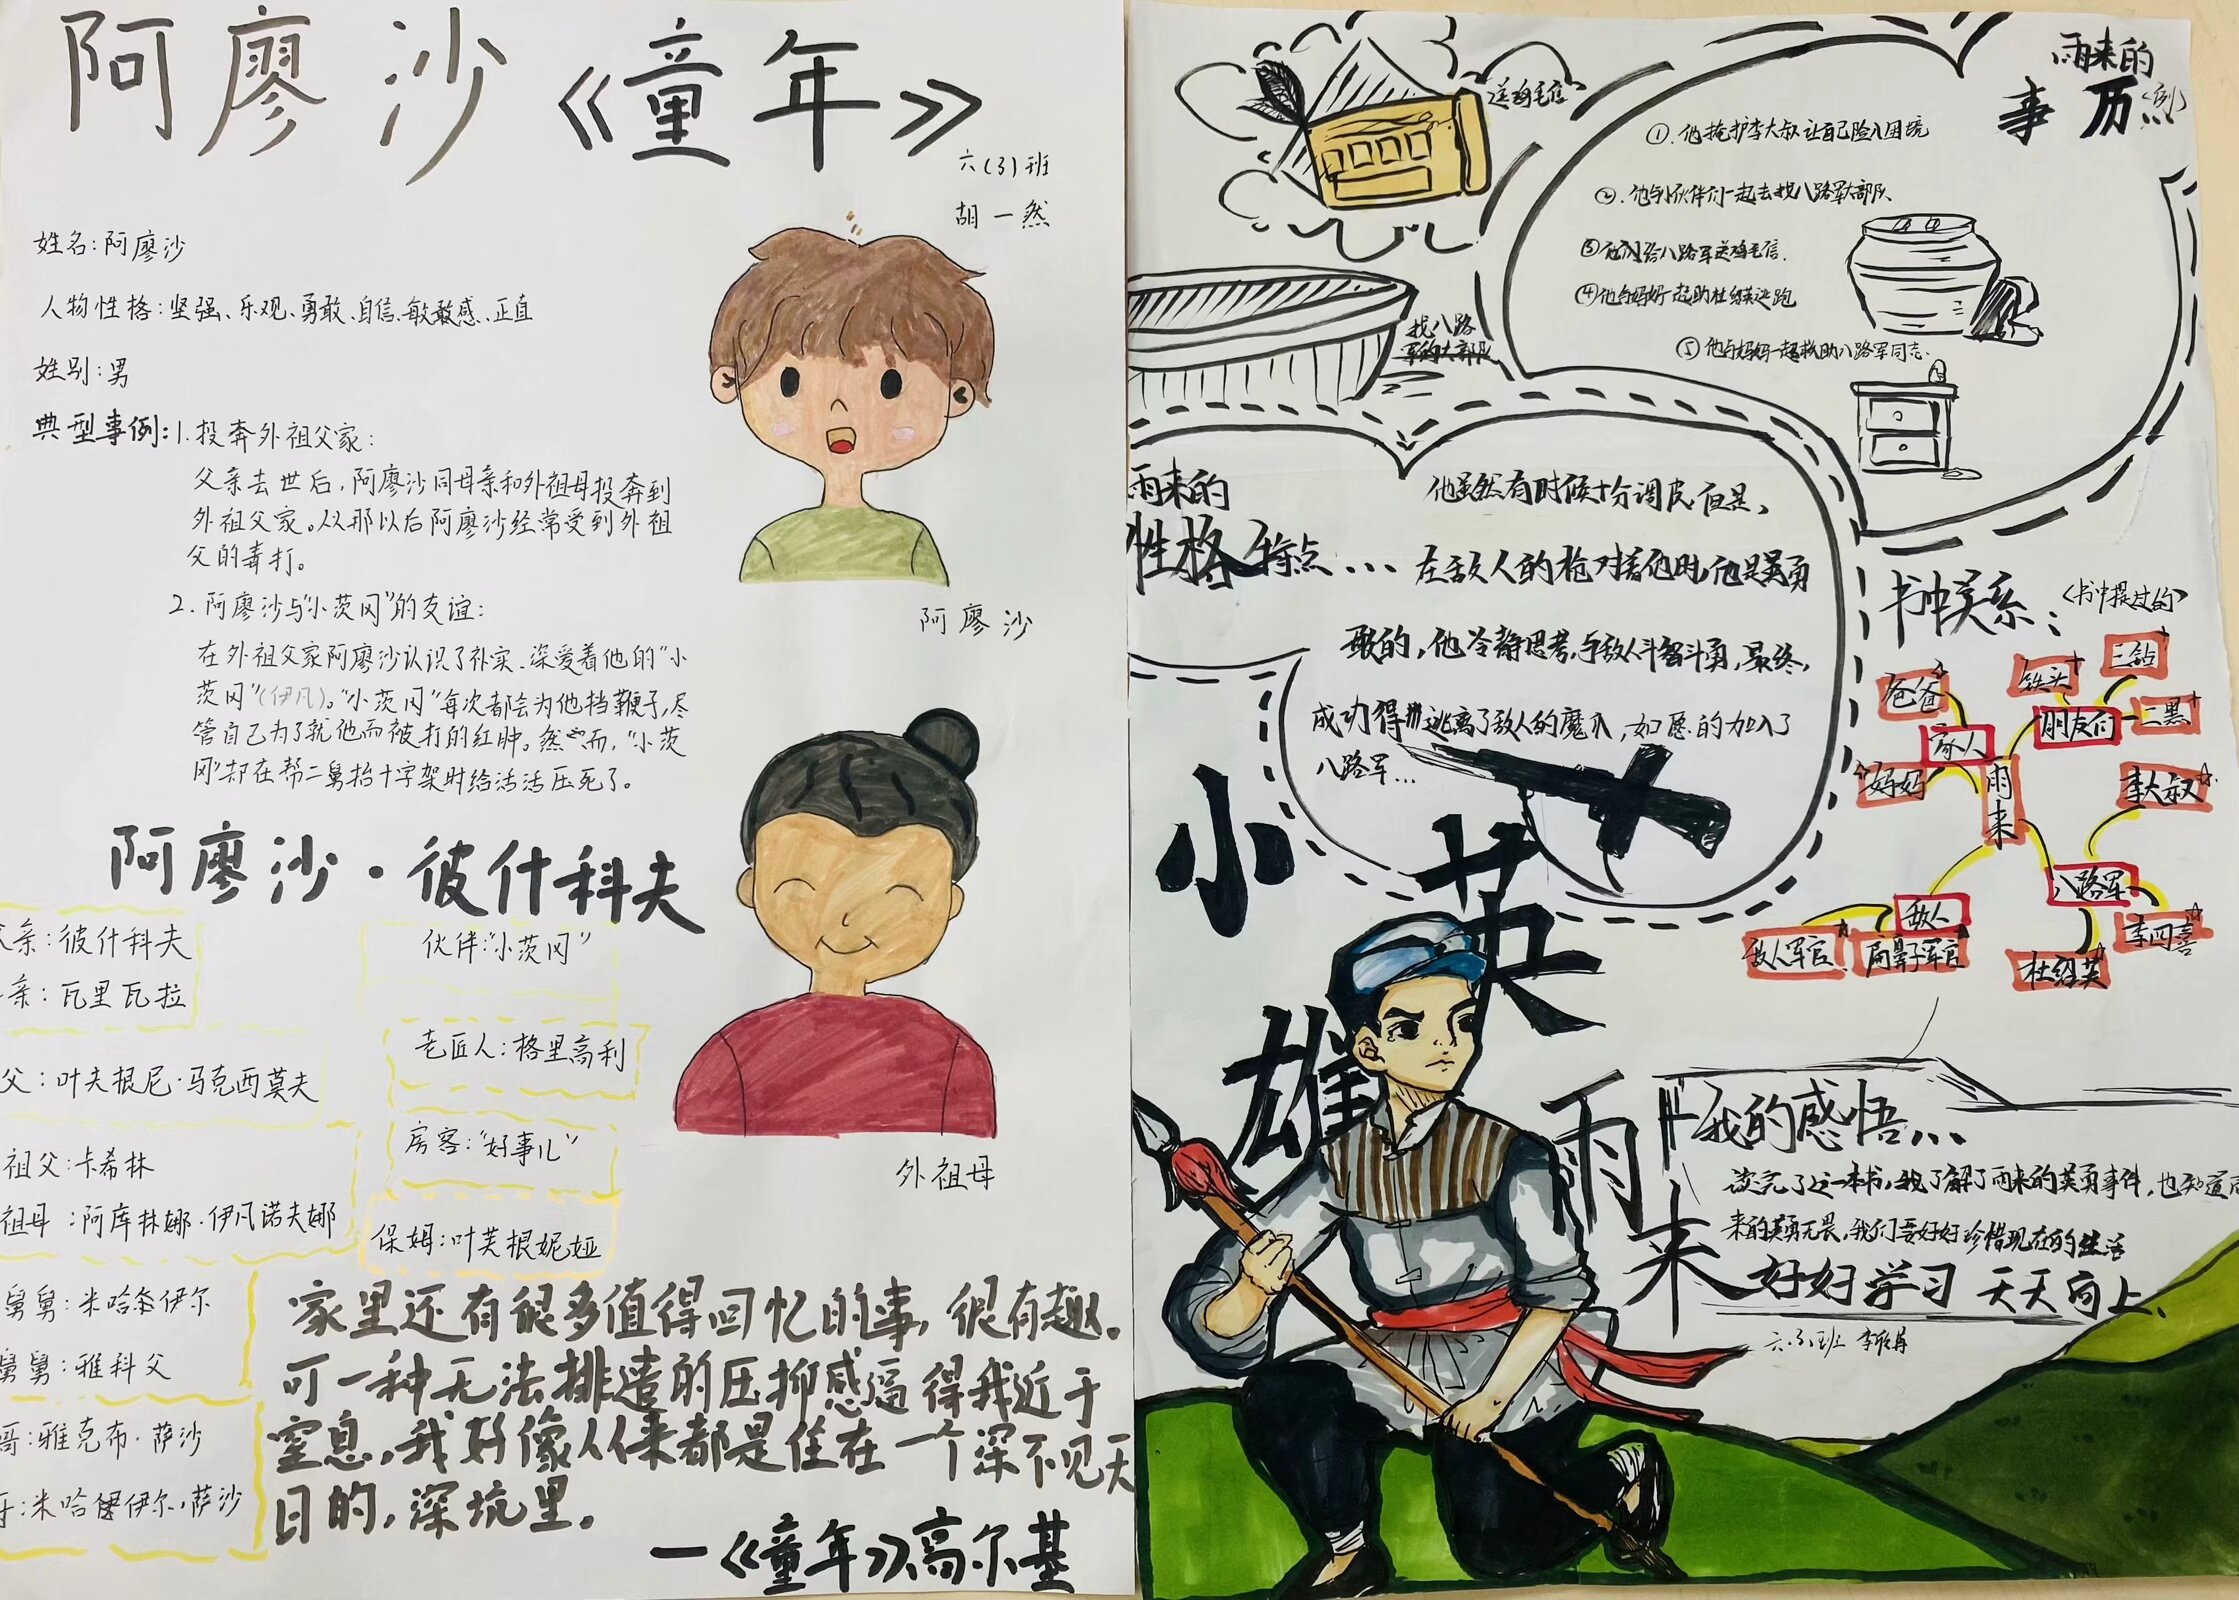 阿廖沙《童年》
六(3)班
胡一然
姓名:阿廖沙
人物性格:坚强、乐观、勇敢、自信、敏感、正直
姓别:男
典型事例:1.投奔外祖父家:
父亲去世后,阿廖沙同母亲和外祖母投奔到
外祖父家。从那以后阿廖沙经常受到外祖
父的毒打。
2.阿廖沙与“小茨冈”的友谊:
在外祖父家阿廖沙认识了朴实、深爱着他的“小
茨冈”(伊凡)。“小茨冈”每次都会为他挡鞭子,尽
管自己为了就他而被打的红肿。然而,“小茨
冈”却在帮二舅抬十字架时给活活压死了。
阿廖沙
外祖母
阿廖沙·彼什科夫
亲:彼什科夫
亲:瓦里瓦拉
父:叶夫根尼·马克西莫夫
祖父:卡希林
祖母:阿库林娜·伊凡诺夫娜
舅舅:米哈伊尔
舅舅:雅科父
哥:雅克布·萨沙
:米哈伊尔·萨沙
伙伴:“小茨冈”
老匠人:格里高利
房客:“好事儿”
保姆:叶芙根妮娅
家里还有很多值得回忆的事,很有趣。
可一种无法排遣的压抑感逼得我近于
窒息,我好像从来都是住在一个深不见天
日的,深坑里。
—《童年》高尔基
送鸡毛信
找八路
军的大部队
雨来的
事历(例)
①.他掩护李大叔让自己险入困境
②.他与小伙伴们一起去找八路军大部队
③他们给八路军送鸡毛信.
④他与妈妈一起助杜绍英逃跑
⑤他与妈妈一起救助八路军同志.
雨来的
性格特点...
他虽然有时候十分调皮,但是,
在敌人的枪对着他时,他是英勇
敢的,他冷静思考,与敌人斗智斗勇,最终,
成功得逃离了敌人的魔爪,如愿的加入了
八路军...
书中关系:<书中提过的>
三钻
铁头
二黑
朋友们
爸爸
家人
妈妈
雨来
李大叔
八路军
李四喜
杜绍英
敌人
敌人军官
扁鼻子军官
小英雄雨来
我的感悟...
读完了这一本书,我了解了雨来的英勇事件,也知道雨
来的英勇无畏,我们要好好珍惜现在的生活
好好学习 天天向上.